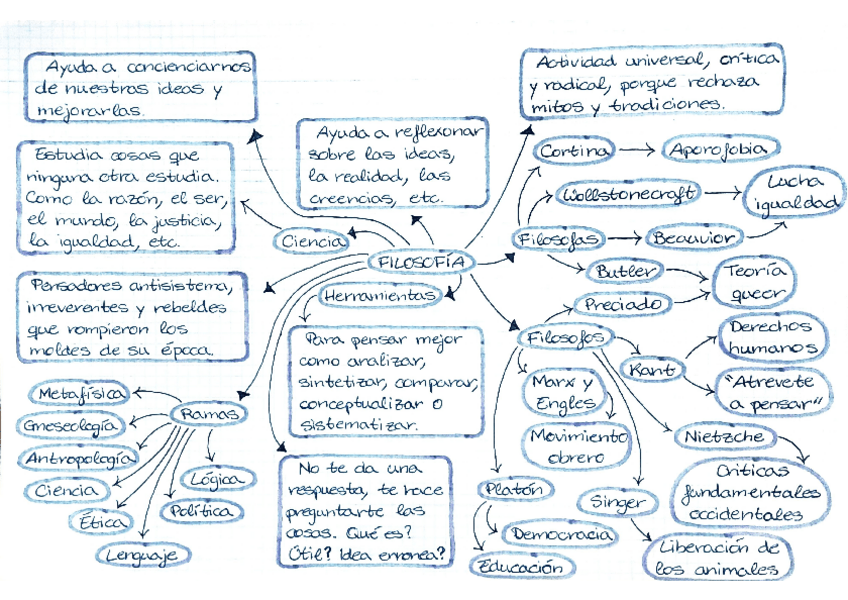 Ayuda a concienciarnos
de nuestras ideas y
mejorarlas.
Actividad universal, crítica
y radical, porque rechaza
mitos y tradiciones.
Ayuda a reflexionar
sobre las ideas,
la realidad, las
creencias, etc.
Estudia cosas que
ninguna otra estudia.
Como la razón, el ser,
el mundo, la justicia,
la igualdad, etc.
Ciencia
FILOSOFÍA
Herramientas
Pensadores antisistema,
irreverentes y rebeldes
que rompieron los
moldes de su época.
Para pensar mejor
como analizar,
sintetizar, comparar,
conceptualizar o
sistematizar.
Cortina
Aporofobia
Wollstonecraft
Lucha
igualdad
Filosofas
Beauvior
Butler
Teoría
queer
Preciado
Filosofos
Kant
Derechos
humanos
"Atrevete
a pensar"
Marx y
Engles
Movimiento
obrero
Nietzche
Criticas
fundamentales
occidentales
Platón
Democracia
Educación
Singer
Liberación de
los animales
Ramas
Metafísica
Gneseología
Antropología
Ciencia
Ética
Lenguaje
Política
Lógica
No te da una
respuesta, te hace
preguntarte las
cosas. Qué es?
Útil? Idea erronea?